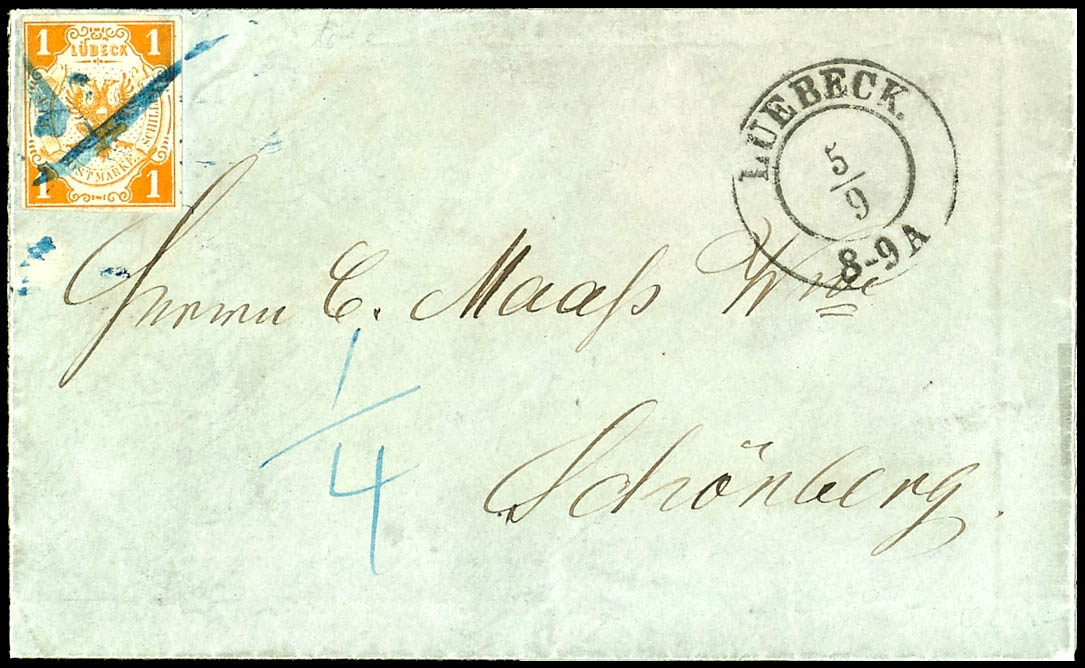 1 1
LÜBECK
POSTMARKE SCHILL
1 1
LUEBECK.
5/9
8-9 A
Herrn C. Maaß Wwe
1/4
Schönberg.